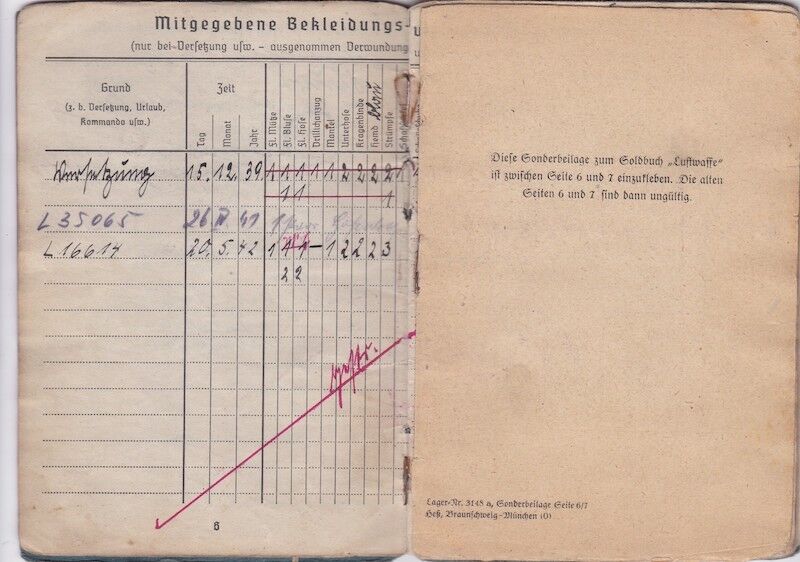 Mitgegebene Bekleidungs-
(nur bei Versetzung usw. – ausgenommen Verwundung
Grund
(z. b. Versetzung, Urlaub,
Kommando usw.)
Zeit
Tag
Monat
Jahr
Fl. Mütze
Fl. Bluse
Fl. Hose
Drillichanzug
Mantel
Unterhose
Kragenbinde
Hemd
Strümpfe
Versetzung 15. 12. 39. 1 1 1 1 1 2 2 2 2
1 1 1
L 35065 26 41 1
L 16614 20. 5. 42 1 1 1 – 1 2 2 2 3
2 2
6
Diese Sonderbeilage zum Soldbuch „Luftwaffe“
ist zwischen Seite 6 und 7 einzukleben. Die alten
Seiten 6 und 7 sind dann ungültig.
Lager-Nr. 3148 a, Sonderbeilage Seite 6/7
Heß, Braunschweig-München (0)